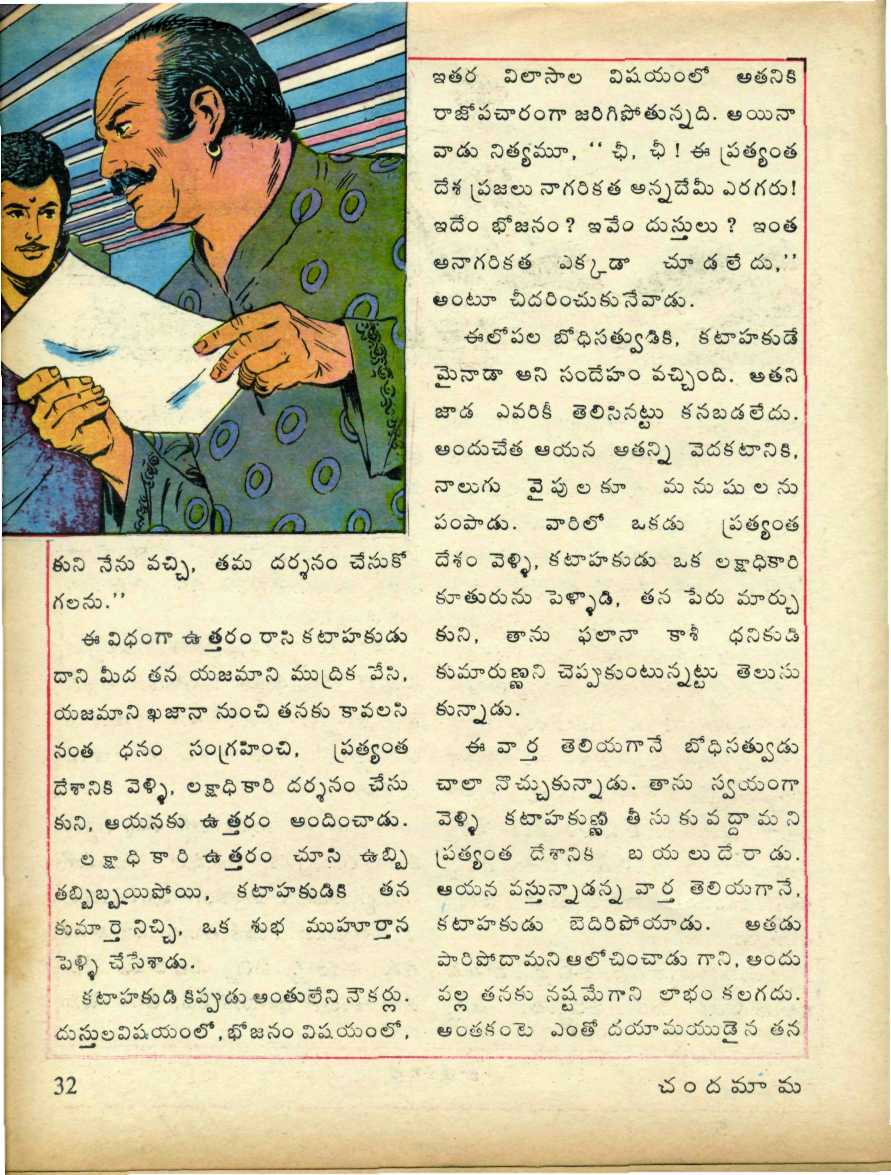 కుని నేను వచ్చి, తమ దర్శనం చేసుకో
గలను.''
ఈ విధంగా ఉత్తరం రాసి కటాహకుడు
దాని మీద తన యజమాని ముద్రిక వేసి,
యజమాని ఖజానా నుంచి తనకు కావలసి
నంత ధనం సంగ్రహించి, ప్రత్యంత
దేశానికి వెళ్ళి, లక్షాధికారి దర్శనం చేసు
కుని, ఆయనకు ఉత్తరం అందించాడు.
లక్షాధికారి ఉత్తరం చూసి ఉబ్బి
తబ్బిబ్బయిపోయి, కటాహకుడికి తన
కుమార్తె నిచ్చి, ఒక శుభ ముహూర్తాన
పెళ్ళి చేసేశాడు.
కటాహకుడి కిప్పుడు అంతులేని నౌకర్లు.
దుస్తులవిషయంలో, భోజనం విషయంలో,
ఇతర విలాసాల విషయంలో అతనికి
రాజోపచారంగా జరిగిపోతున్నది. అయినా
వాడు నిత్యమూ, '' ఛీ, ఛీ ! ఈ ప్రత్యంత
దేశ ప్రజలు నాగరికత అన్నదేమీ ఎరగరు!
ఇదేం భోజనం ? ఇవేం దుస్తులు ? ఇంత
అనాగరికత ఎక్కడా చూడలేదు,''
అంటూ చీదరించుకునేవాడు.
ఈలోపల బోధిసత్వుడికి, కటాహకుడే
మైనాడా అని సందేహం వచ్చింది. అతని
జాడ ఎవరికీ తెలిసినట్టు కనబడలేదు.
అందుచేత ఆయన అతన్ని వెదకటానికి,
నాలుగు వైపులకూ మనుషులను
పంపాడు. వారిలో ఒకడు ప్రత్యంత
దేశం వెళ్ళి, కటాహకుడు ఒక లక్షాధికారి
కూతురును పెళ్ళాడి, తన పేరు మార్చు
కుని, తాను ఫలానా కాశీ ధనికుడి
కుమారుణ్ణని చెప్పుకుంటున్నట్టు తెలుసు
కున్నాడు.
ఈ వార్త తెలియగానే బోధిసత్వుడు
చాలా నొచ్చుకున్నాడు. తాను స్వయంగా
వెళ్ళి కటాహకుణ్ణి తీసుకువద్దామని
ప్రత్యంత దేశానికి బయలుదేరాడు.
ఆయన వస్తున్నాడన్న వార్త తెలియగానే,
కటాహకుడు బెదిరిపోయాడు. అతడు
పారిపోదామని ఆలోచించాడు గాని, అందు
వల్ల తనకు నష్టమేగాని లాభం కలగదు.
అంతకంటె ఎంతో దయామయుడైన తన
32
చందమామ